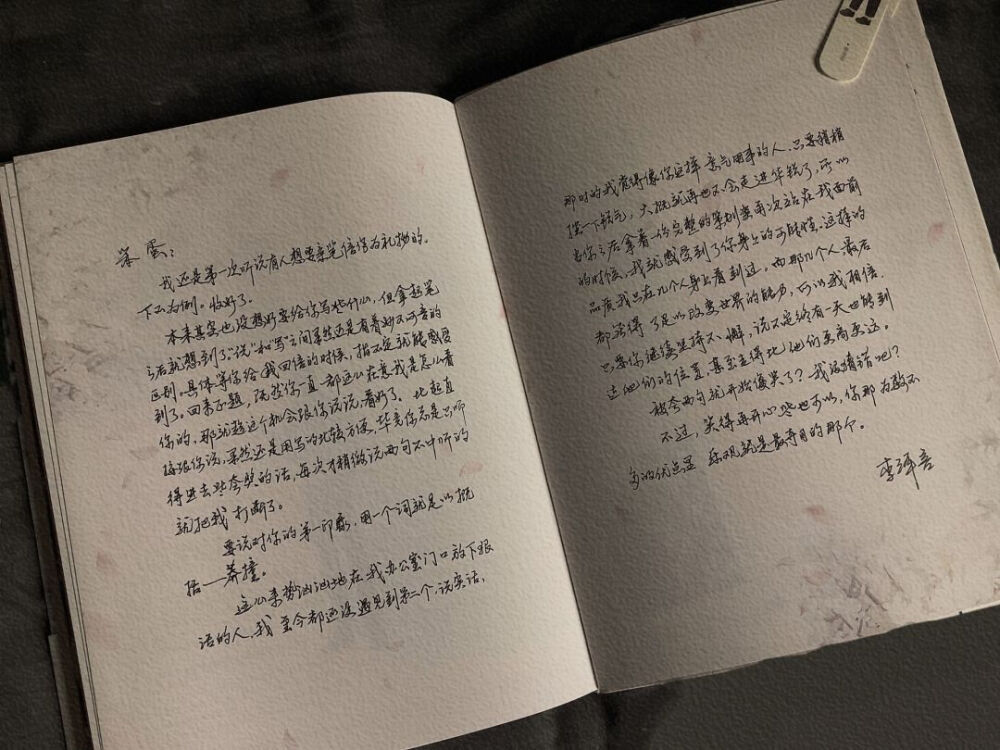 笨蛋：
我还是第一次听说有人想要亲笔信作为礼物的。
下不为例。收好了。
本来其实也没想好要给你写些什么，但拿起笔
之后就想到了“说”和“写”之间果然还是有着妙不可言的
区别。具体等你给我回信的时候，指不定就能感受
到了。回来正题，既然你一直都这么在意我是怎么看
你的，那就趁这个机会跟你说说，看好了。比起直
接跟你说，果然还是用写的比较方便，毕竟你总是只听
得进去些夸奖的话，每次才稍微说两句不中听的
就把我打断了。
要说对你的第一印象，用一个词就足以概
括——莽撞。
这么来势汹汹地在我办公室门口放下狠
话的人，我至今都还没遇见到第二个，说实话，
那时的我觉得像你这样意气用事的人，只要稍稍
挫一下锐气，大概就再也不会走进华锐了，所以
当你之后拿着一份完整的策划案再次站在我面前
的时候，我就感受到了你身上的可能性。这样的
品质我只在几个人身上看到过，而那几个人最后
都获得了足以改变世界的能力，所以我相信，
只要你继续坚持不懈，说不定终有一天也能到
达他们的位置，甚至走得比他们更高更远。
被夸两句就开始傻笑了？我没猜错吧？
不过，笑得再开心些也可以，你那为数不
多的优点里 乐观就是最夺目的那个。
李泽言